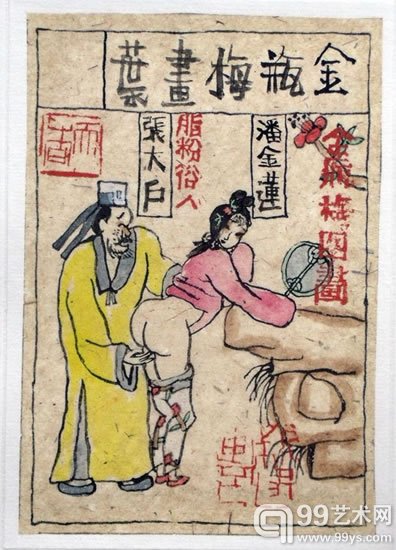 金瓶梅畫
金瓶梅圖畫
潘金蓮
脂粉俗人
張大户
99艺术网
www.99ys.com